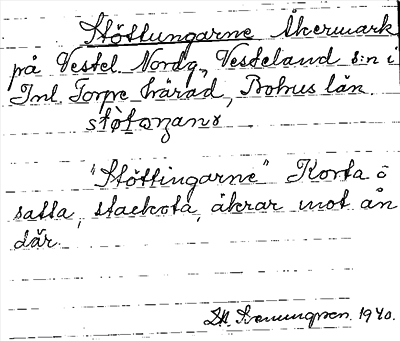 Stöttungarne Åkermark
på Vestel. Nordg., Vesteland s:n i
Inl. Torpe härad, Bohus län.
"Stöttingarne" Korta o
satta, stackota, åkrar mot ån
där.
1940.